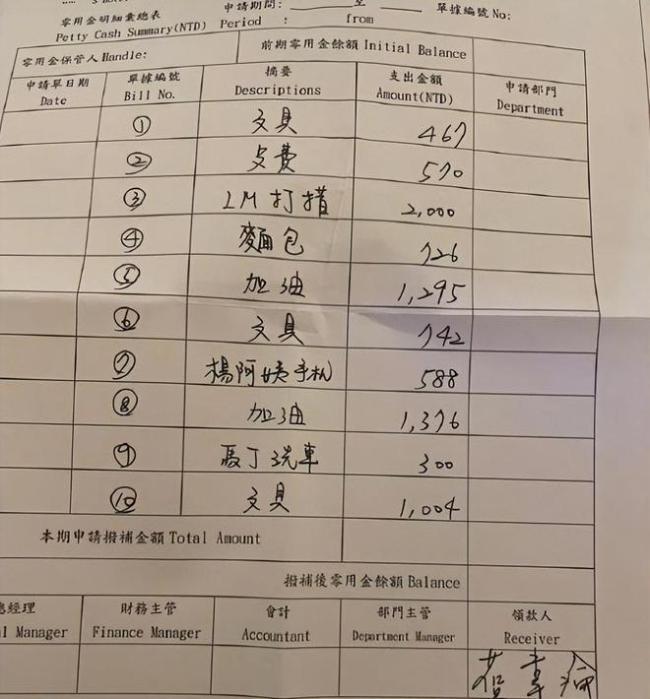 申請期間: 至 單據編號 No:
零用金明細彙總表
Petty Cash Summary(NTD) Period : from
零用金保管人 Handle: 前期零用金餘額 Initial Balance
申請單日期 單據編號 摘要 支出金額 申請部門
Date Bill No. Descriptions Amount(NTD) Department
① 文具 467
② 570
③ 2M 打 2,000
④ 麵包 726
⑤ 加油 1,295
⑥ 文具 742
⑦ 楊阿姨手机 588
⑧ 加油 1,376
⑨ 馬丁洗車 300
⑩ 文具 1,004
本期申請撥補金額 Total Amount
撥補後零用金餘額 Balance
總經理 財務主管 會計 部門主管 領款人
Manager Finance Manager Accountant Department Manager Receiver